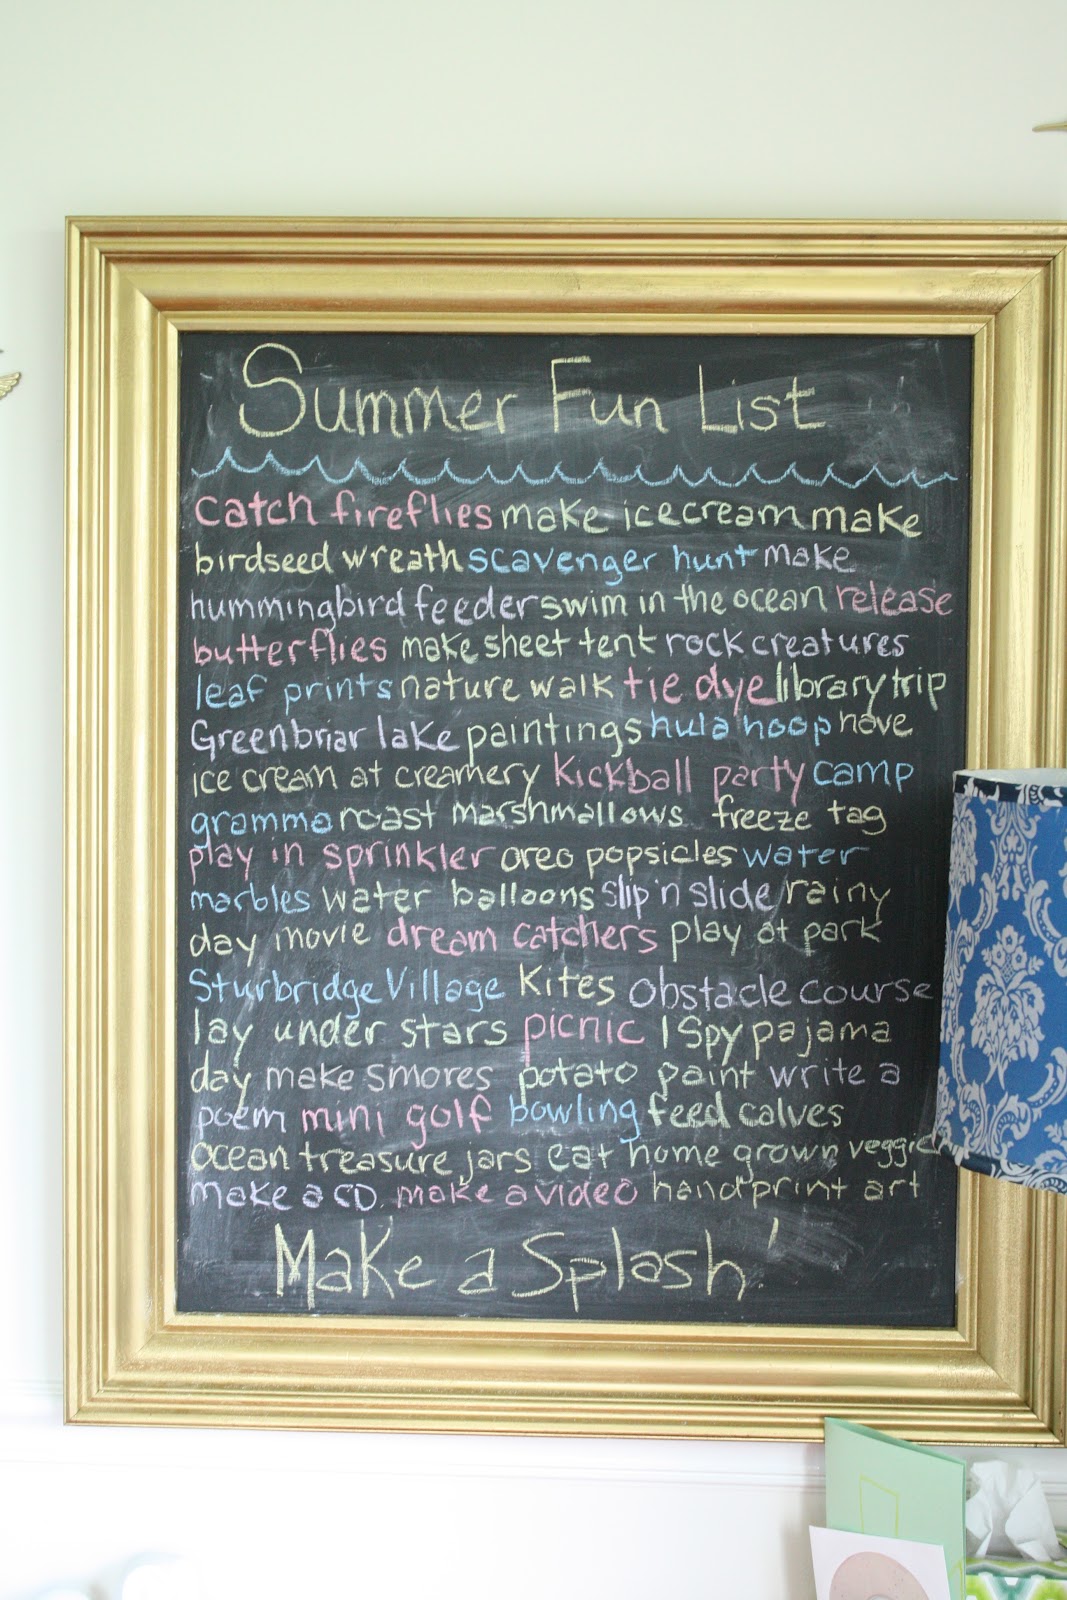 Summer Fun List
catch fireflies make ice cream make
birdseed wreath scavenger hunt make
hummingbird feeder swim in the ocean release
butterflies make sheet tent rock creatures
leaf prints nature walk tie dye library trip
Greenbriar lake paintings hula hoop have
ice cream at creamery kickball party camp
gramma roast marshmallows freeze tag
play in sprinkler oreo popsicles water
marbles water balloons slip'n slide rainy
day movie dream catchers play at park
Sturbridge Village Kites obstacle course
lay under stars picnic I Spy pajama
day make smores potato paint write a
poem mini golf bowling feed calves
ocean treasure jars eat home grown veggie
make a CD. make a video handprint art
Make a Splash!